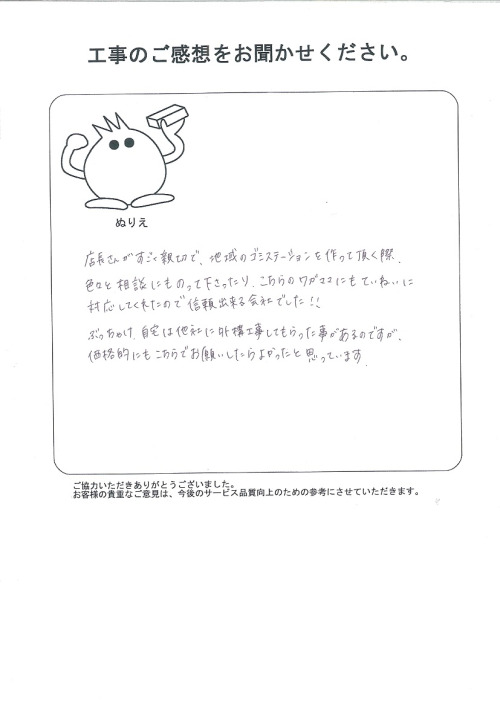 工事のご感想をお聞かせください。
ぬりえ
店長さんがすごく親切で、地域のゴミステーションを作って頂く際、
色々と相談にものって下さったり、こちらのワガママにもていねいに
対応してくれたので信頼出来る会社でした!!
ぶっちゃけ、自宅は他社に外構工事してもらった事があるのですが、
価格的にもこちらでお願いしたらよかったと思っています。
ご協力いただきありがとうございました。
お客様の貴重なご意見は、今後のサービス品質向上のための参考にさせていただきます。